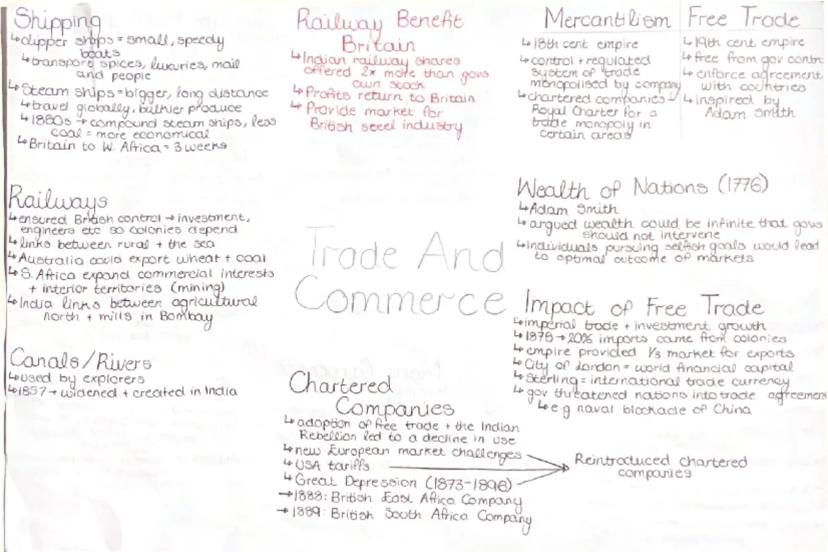 Shipping
↳clipper ships = small, speedy
boats
↳transport spices, luxuries, mail
and people
↳Steam ships = bigger, long distance
↳travel globally, bulkier produce
↳1880s → compound steam ships, less
coal = more economical
↳Britain to W. Africa = 3 weeks
Railways
↳ensured British control → investment,
engineers etc so colonies depend
↳links between rural + the sea
↳Australia could export wheat + coal
↳S. Africa expand commercial interests
+ interior territories (mining)
↳India links between agricultural
north + mills in Bombay
Canals/Rivers
↳used by explorers
↳1857 → widened + created in India
Railway Benefit
Britain
↳Indian railway shares
offered 2x more than govs
own stock
↳Profits return to Britain
↳Provide market for
British steel industry
Trade And
Commerce
Chartered
Companies
↳adoption of free trade + the Indian
Rebellion led to a decline in use
↳new European market challenges
↳USA tariffs
↳Great Depression (1873-1896)
→1888: British East Africa Company
→1889: British South Africa Company
Reintroduced chartered
companies
Mercantilism
↳18th cent empire
↳control + regulated
system of trade
monopolised by company
↳chartered companies →
Royal Charter for a
trade monopoly in
certain areas
Free Trade
↳19th cent empire
↳free from gov contr
↳enforce agreement
with countries
↳inspired by
Adam Smith
Wealth of Nations (1776)
↳Adam Smith
↳argued wealth could be infinite that govs
should not intervene
↳individuals pursuing selfish goals would lead
to optimal outcome of markets
Impact of Free Trade
↳imperial trade + investment growth
↳1875 → 20% imports came from colonies
↳empire provided 1/3 market for exports
↳City of London = world financial capital
↳Sterling = international trade currency
↳gov threatened nations into trade agreement
↳e.g naval blockade of China